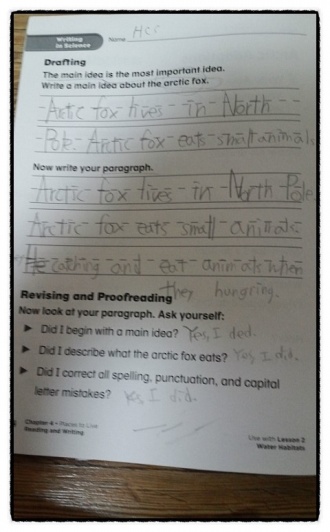 Writing
in Science
Name
Drafting
The main idea is the most important idea.
Write a main idea about the arctic fox.
Arctic fox lives in North
Pole. Arctic fox eats small animals
Now write your paragraph.
Arctic fox lives in North Pole
Arctic fox eats small animals
catching and eat animals when
they hungring.
Revising and Proofreading
Now look at your paragraph. Ask yourself:
Did I begin with a main idea? Yes, I ded.
Did I describe what the arctic fox eats? Yes, I did.
Did I correct all spelling, punctuation, and capital
letter mistakes? Yes, I did.
Chapter 4 • Places to Live
Reading and Writing
Use with Lesson 2
Water Habitats